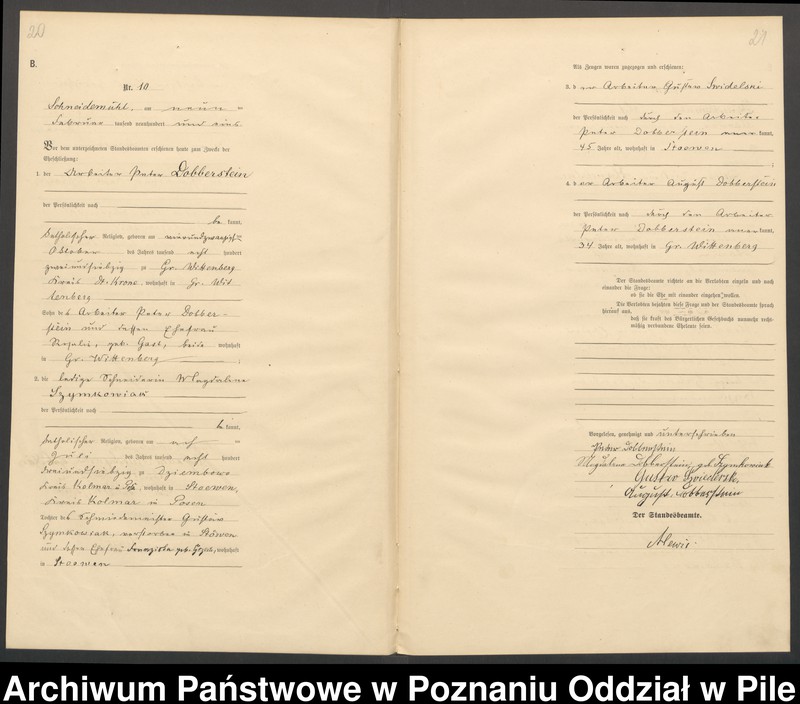 20
B.
Nr. 10
Schneidemühl, am neun
Februar tausend neunhundert und eins
Vor dem unterzeichneten Standesbeamten erschienen heute zum Zwecke der
Eheschließung:
1. der Arbeiter Peter Dobberstein
der Persönlichkeit nach
be kannt,
katholischer Religion, geboren am vierundzwanzigsten
Oktober des Jahres tausend acht hundert
zweiundsiebzig zu Gr. Wittenberg
Kreis Dt. Krone, wohnhaft in Gr. Wit
tenberg
Sohn des Arbeiter Peter Dobber-
stein und dessen Ehefrau
Rosalie, geb. Gast, beide wohnhaft
in Gr. Wittenberg ;
2. die ledige Schneiderin Magdalena
Szymkowiak
der Persönlichkeit nach
kannt,
katholischer Religion, geboren am
Juli des Jahres tausend acht hundert
zu Dziembowo
Kreis Kolmar i/ Pos., wohnhaft in Stoewen,
Kreis Kolmar in Posen
Tochter des Schmiedemeister Gustav
Szymkowiak, verstorben in Stöwen
und dessen Ehefrau Franziska geb. wohnhaft
in Stoewen
21
Als Zeugen waren zugezogen und erschienen:
3. der Arbeiter Gustav
der Persönlichkeit nach durch den Arbeiter
Peter Dobberstein aner kannt,
45 Jahre alt, wohnhaft in Stoewen
;
4. der Arbeiter August Dobberstein
der Persönlichkeit nach durch den Arbeiter
Peter Dobberstein aner kannt,
34 Jahre alt, wohnhaft in Gr. Wittenberg
Der Standesbeamte richtete an die Verlobten einzeln und nach
einander die Frage:
ob sie die Ehe mit einander eingehen wollen.
Die Verlobten bejahten diese Frage und der Standesbeamte sprach
hierauf aus,
daß sie kraft des Bürgerlichen Gesetzbuchs nunmehr recht-
mäßig verbundene Eheleute seien.
Vorgelesen, genehmigt und unterschrieben
Peter Dobberstein
Magdalena Dobberstein, geb. Szymkowiak
Gustav
August Dobberstein
Der Standesbeamte.
Archiwum Państwowe w Poznaniu Oddział w Pile